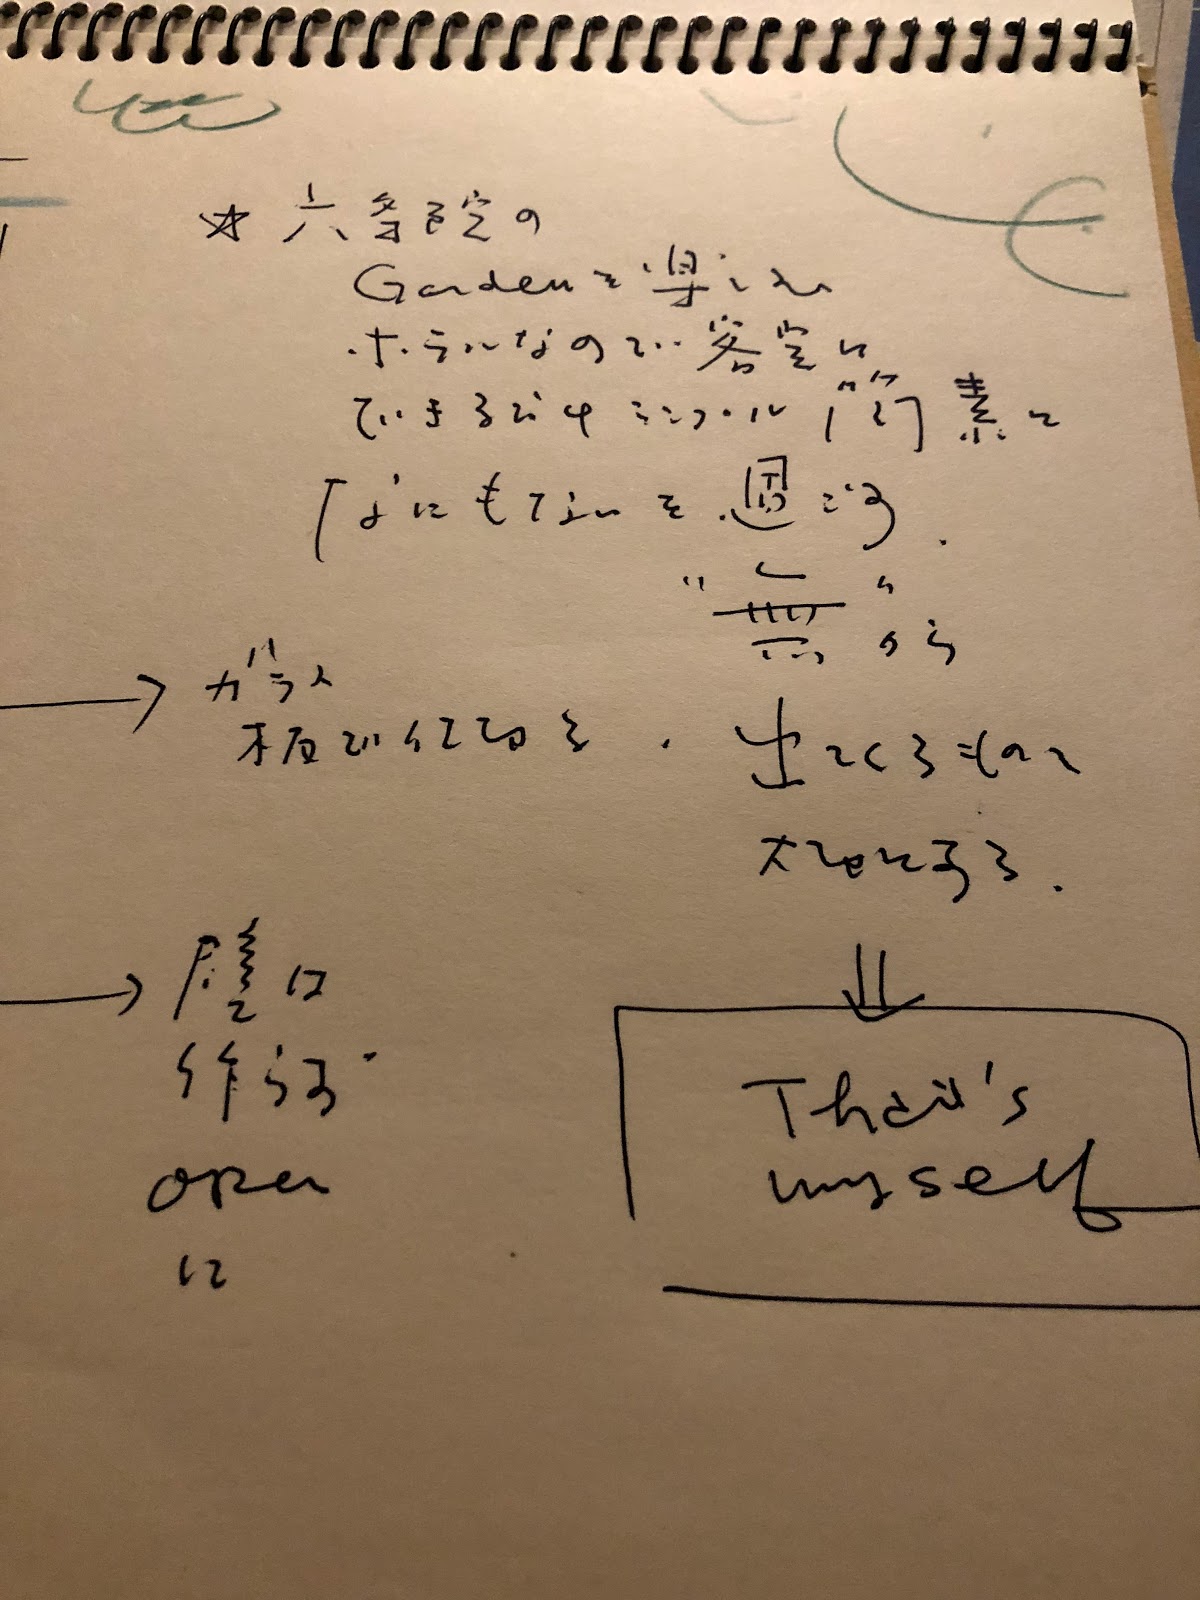 ☆ 六条院の
Gardenを楽しむ
ホテルなので客室は
できるだけシンプル 簡素に
「なにもしないを過ごす.
"無"から
出てくるものを
大切にする.
→ ガラス
板で仕切る.
→ 壁は
作らず
open
に
⇓
That's
myself